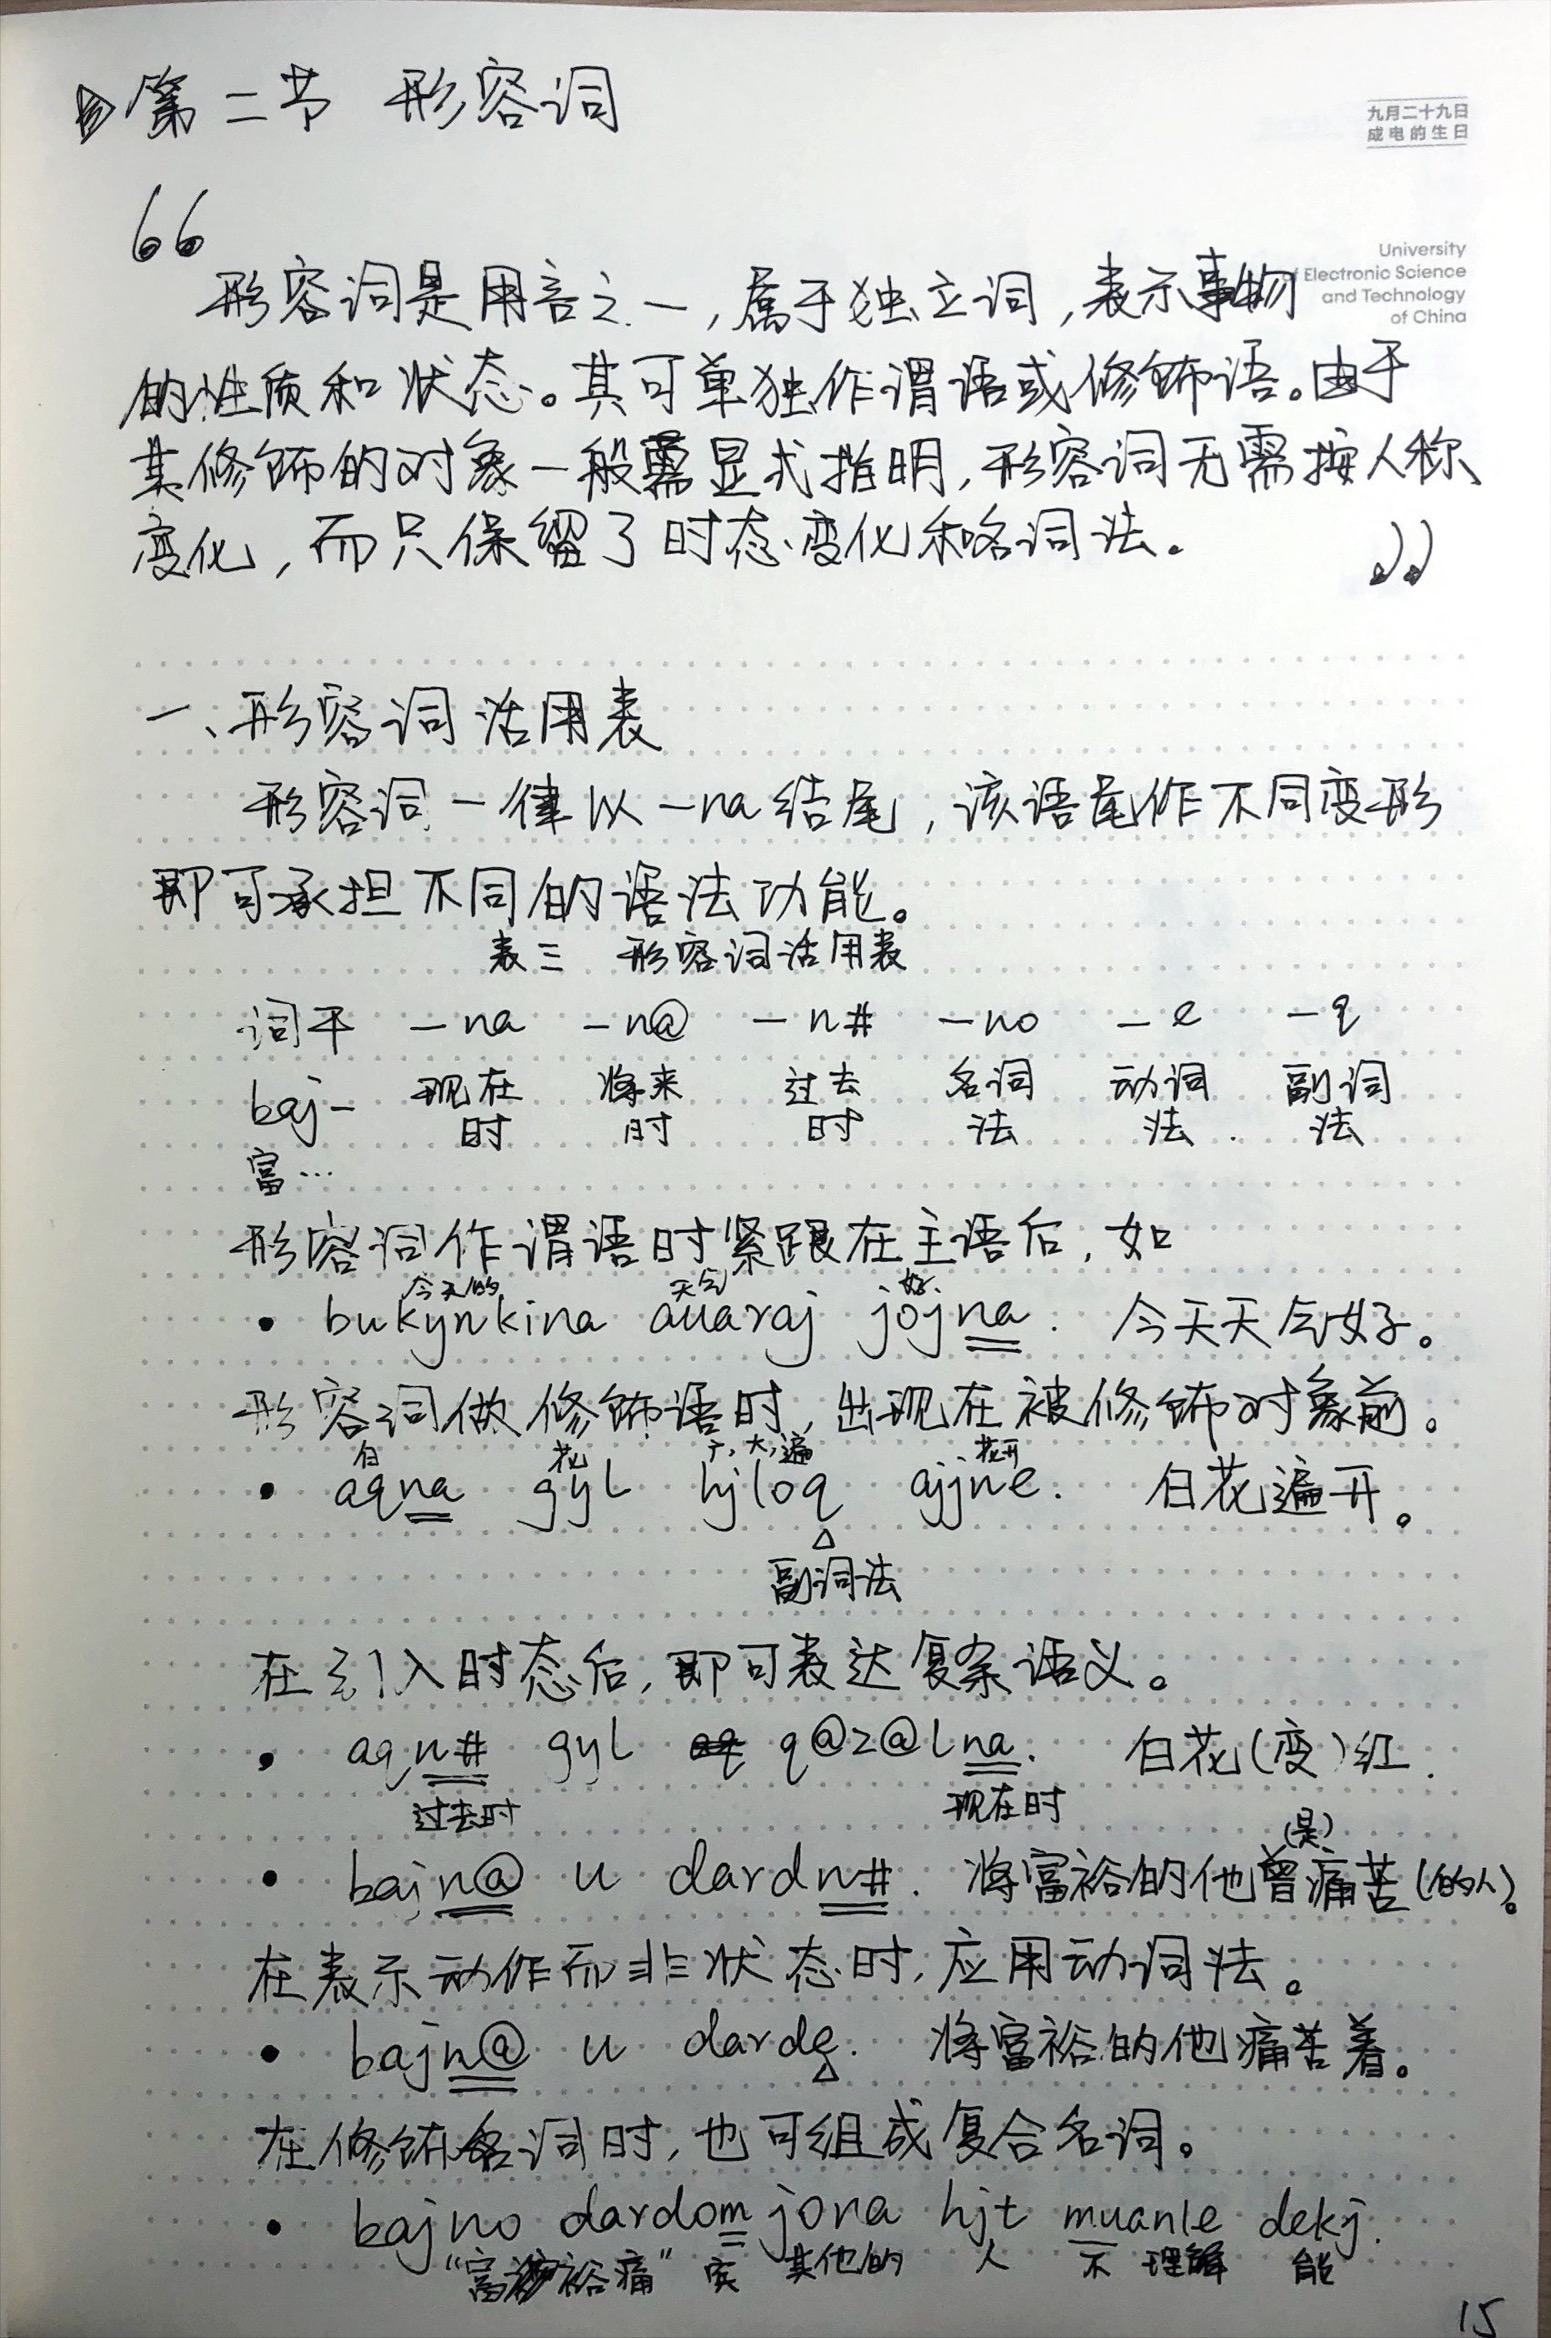 第二节 形容词
九月二十九日
成电的生日
University
Electronic Science
and Technology
of China
形容词是用言之一,属于独立词,表示事物
的性质和状态。其可单独作谓语或修饰语。由于
其修饰的对象一般需显式指明,形容词无需按人称
变化,而只保留了时态变化和略词法。
一、形容词活用表
形容词一律以-na结尾,该语尾作不同变形
即可承担不同的语法功能。
表三 形容词活用表
词干 -na -n@ -n# -no -e -q
baj- 现在时 将来时 过去时 名词法 动词法 副词法
富…
形容词作谓语时紧跟在主语后,如
今天的 天气 好
• bukynkina auaraj jojna. 今天天气好。
形容词做修饰语时,出现在被修饰对象前。
白 花 广,大,遍 花开
• aqna gyl hjloq ajjne. 白花遍开。
副词法
在引入时态后,即可表达复杂语义。
• aqn# gyl q@z@lna. 白花(变)红.
过去时 现在时
(是)
• bajn@ u dardn#. 将富裕的他曾痛苦(的人)。
在表示动作而非状态时,应用动词法。
• bajn@ u darde. 将富裕的他痛苦着。
在修饰名词时,也可组成复合名词。
• bajno dardom jona hjt muanle dekj.
“富裕痛” 宾 其他的 人 不 理解 能
15